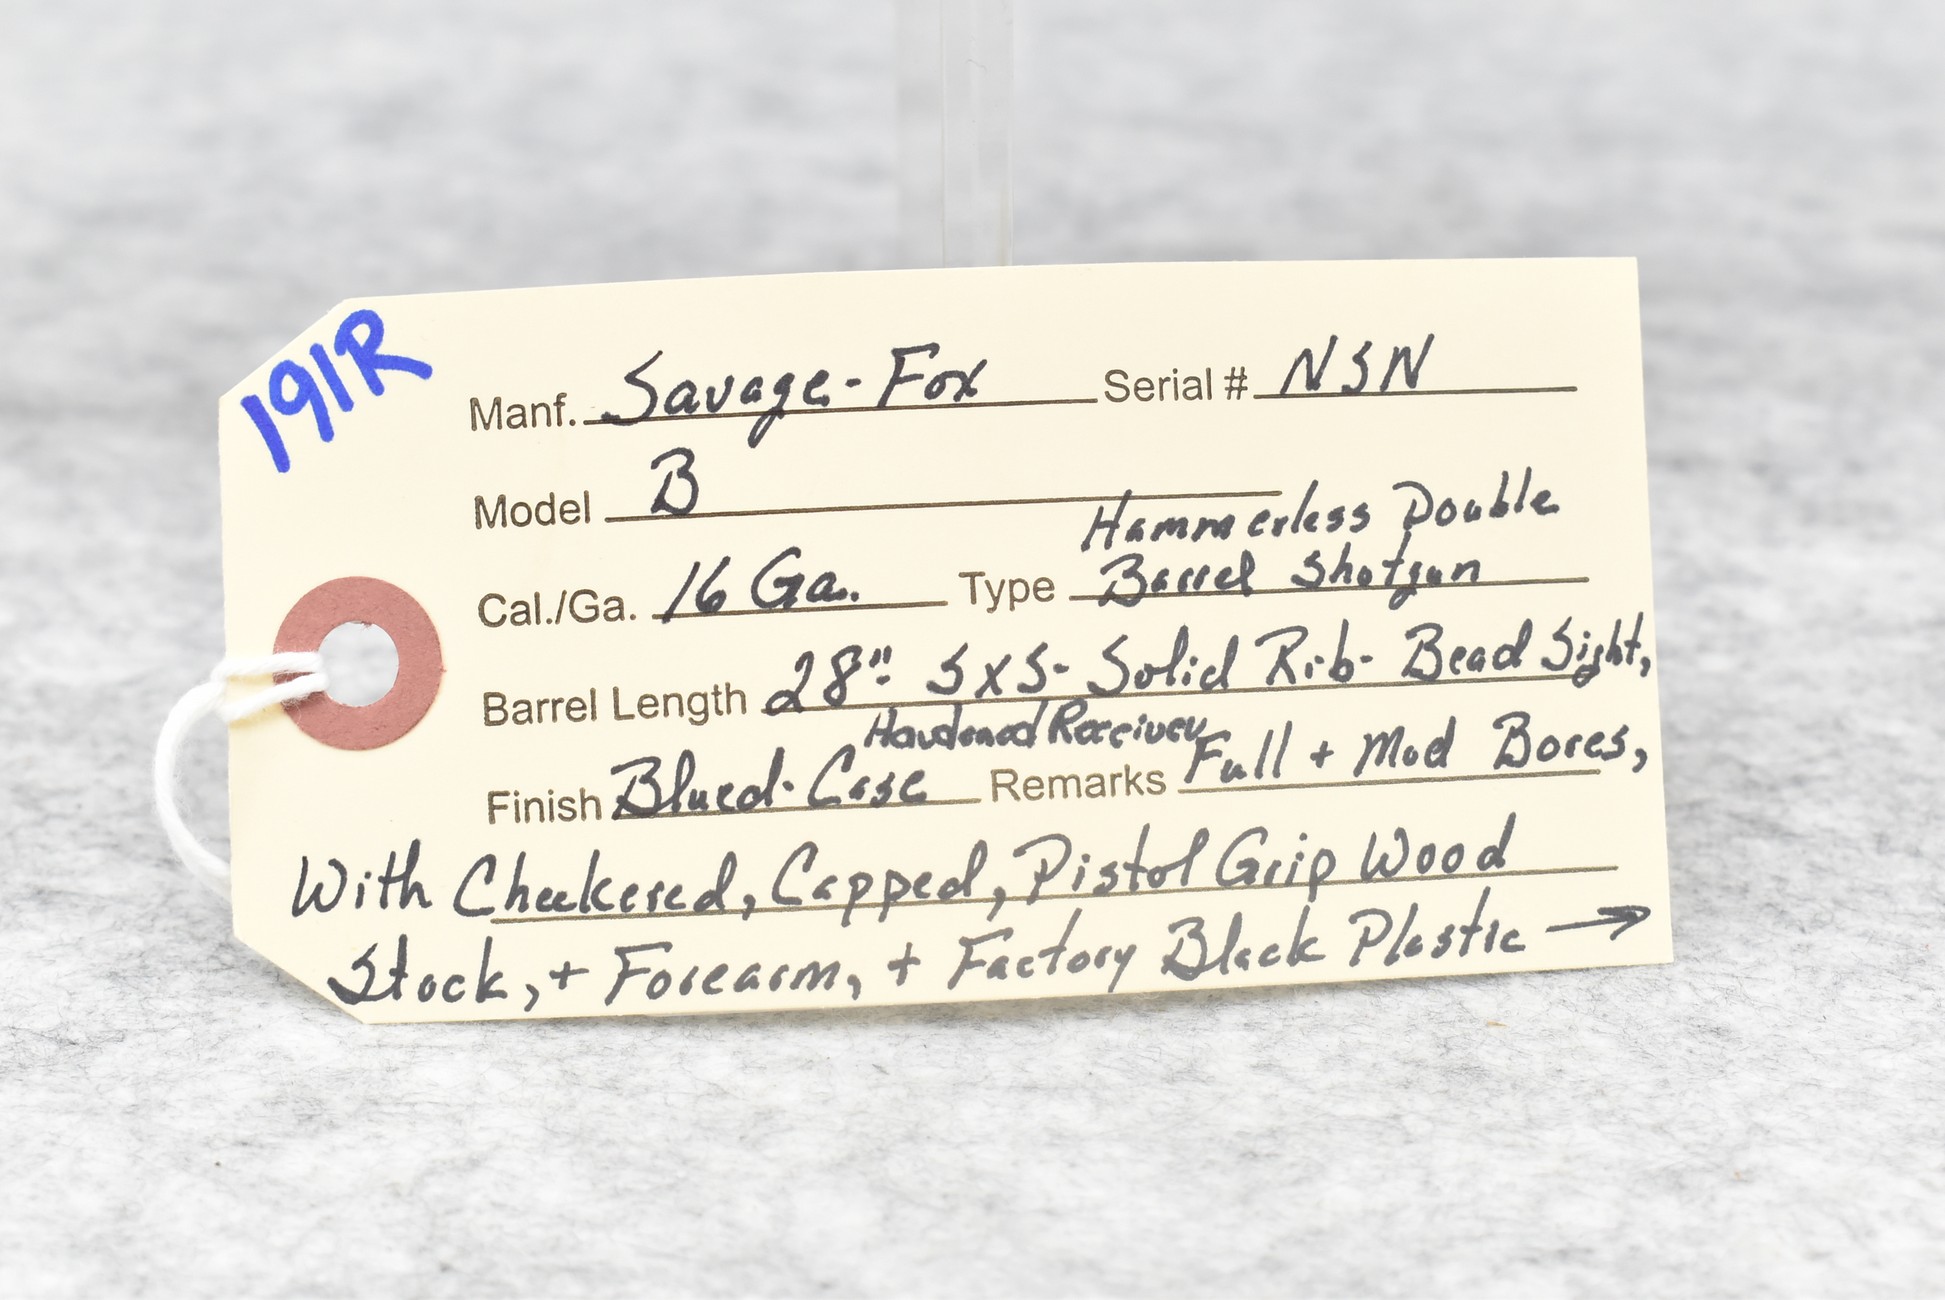 191R
Manf. Savage-Fox Serial # NSN
Model B
Hammerless Double
Cal./Ga. 16 Ga. Type Barrel Shotgun
Barrel Length 28" SxS- Solid Rib- Bead Sight,
Hardened Receiver
Finish Blued-Case Remarks Full + Mod Bores,
With Checkered, Capped, Pistol Grip Wood
Stock, + Forearm, + Factory Black Plastic →